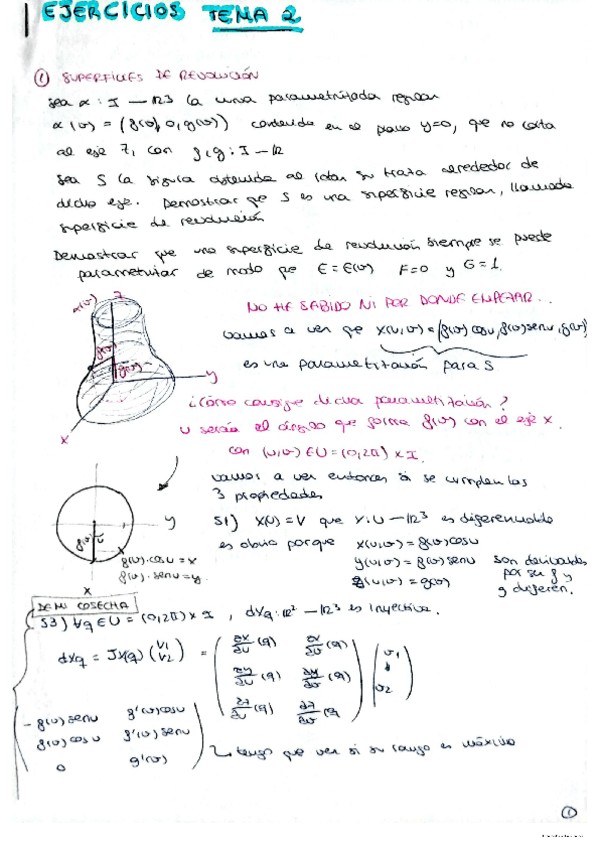 EJERCICIOS TEMA 2
① SUPERFICIES DE REVOLUCIÓN
Sea α : I — IR3 la curva parametrizada regular
α(v) = (f(v), 0, g(v)) contenida en el plano y=0, que no corta
al eje z, con f, g : I — IR
Sea S la figura obtenida al rotar su traza alrededor de
dicho eje. Demostrar que S es una superficie regular, llamada
superficie de revolución
Demostrar que una superficie de revolución siempre se puede
parametrizar de modo que E = E(v) F=0 y G=1.
α(v) z
NO HE SABIDO NI POR DONDE EMPEZAR...
vamos a ver que x(u,v) = (f(v) cosu, f(v) senu, g(v))
es una parametrización para S
g(v) f(v)
y
x
¿Cómo consigue dicha parametrización?
u sería el ángulo que forma f(v) con el eje x.
con (u,v) ∈ U = (0,2π) x I.
vamos a ver entonces si se cumplen las
3 propiedades
y
f(v) u
f(v)·cosu = x
f(v)·senu = y
x
S1) X(U) = V que X: U — IR3 es diferenciable
es obvio porque x(u,v) = f(v) cosu
y(u,v) = f(v) senu
z(u,v) = g(v)
son derivables
por ser f y
g diferen.
DE MI COSECHA
S3) ∀q ∈ U = (0,2π) x I, dXq: IR2 — IR3 es inyectiva.
dXq = JX(q) (v1 v2) = ( ∂x/∂u (q) ∂x/∂v (q)
∂y/∂u (q) ∂y/∂v (q)
∂z/∂u (q) ∂z/∂v (q) ) (v1 v2)
-f(v) senu f'(v) cosu
f(v) cosu f'(v) senu
0 g'(v)
tengo que ver si su rango es máximo
①